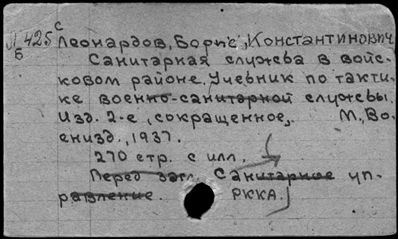 с
Л 425
Б
Леонардов, Борис, Константинович
Санитарная служба в войс-
ковом районе. Учебник по такти-
ке военно-санитарной службы.
Изд. 2-е, сокращенное,. М., Во-
ениэд., 1937.
270 стр. с илл.
Перед загл. Санитарное уп-
равление. РККА.